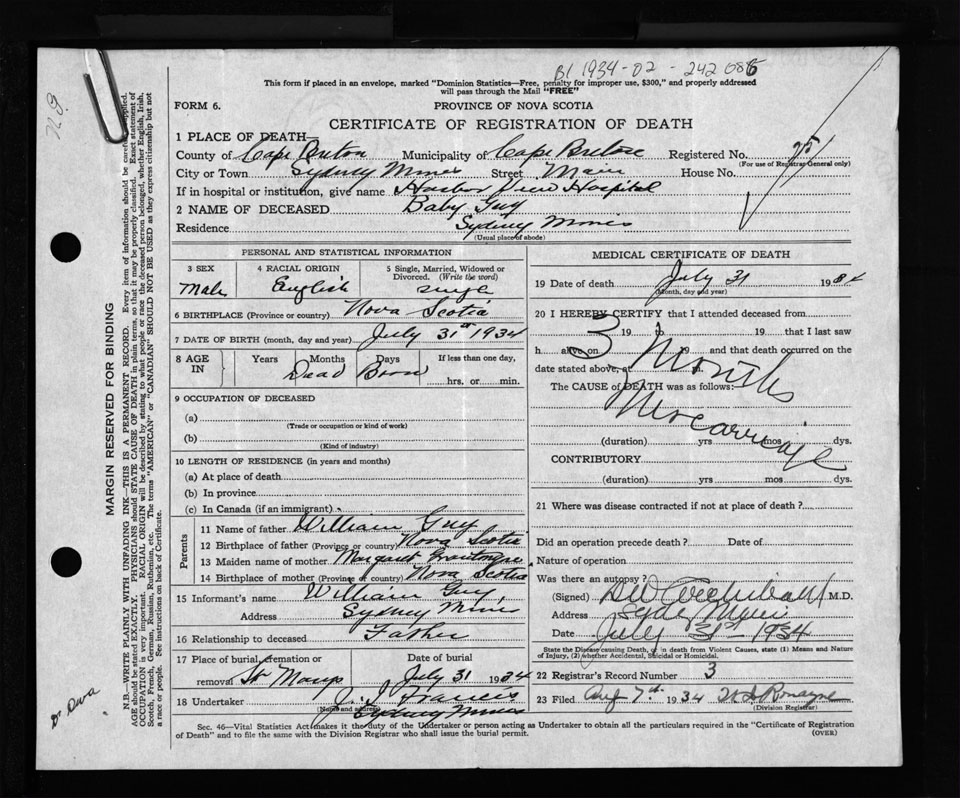 B1 1934-02-242086
This form if placed in an envelope, marked "Dominion Statistics—Free, penalty for improper use, $300," and properly addressed
will pass through the Mail "FREE"
FORM 6.
PROVINCE OF NOVA SCOTIA
CERTIFICATE OF REGISTRATION OF DEATH
1 PLACE OF DEATH—
County of Cape Breton Municipality of Cape Breton Registered No. 75
(For use of Registrar General only)
City or Town Sydney Mines Street Main House No.
If in hospital or institution, give name Harbor View Hospital
2 NAME OF DECEASED Baby Guy
Residence Sydney Mines
(Usual place of abode)
PERSONAL AND STATISTICAL INFORMATION
3 SEX 4 RACIAL ORIGIN 5 Single, Married, Widowed or Divorced. (Write the word)
Male English single
6 BIRTHPLACE (Province or country) Nova Scotia
7 DATE OF BIRTH (month, day and year) July 31st 1934
8 AGE IN Years Months Days If less than one day,
Dead Born hrs. or min.
9 OCCUPATION OF DECEASED
(a)
(Trade or occupation or kind of work)
(b)
(Kind of industry)
10 LENGTH OF RESIDENCE (in years and months)
(a) At place of death
(b) In province
(c) In Canada (if an immigrant)
Parents
11 Name of father William Guy
12 Birthplace of father (Province or country) Nova Scotia
13 Maiden name of mother Margaret
14 Birthplace of mother (Province or country) Nova Scotia
15 Informant's name William Guy
Address Sydney Mines
16 Relationship to deceased Father
17 Place of burial, cremation or Date of burial
removal St Marys July 31 1934
18 Undertaker J. J. Francis
(Name and address) Sydney Mines
MEDICAL CERTIFICATE OF DEATH
19 Date of death July 31 1934
(Month, day and year)
20 I HEREBY CERTIFY that I attended deceased from
3 19 19 and that I last saw
h alive on 19 and that death occurred on the
date stated above, at m.
Months
The CAUSE of DEATH was as follows:
Miscarriage
(duration) yrs mos dys.
CONTRIBUTORY
(duration) yrs mos dys.
21 Where was disease contracted if not at place of death?
Did an operation precede death? Date of
Nature of operation
Was there an autopsy?
(Signed) Archibald M.D.
Address Syd Mines
Date July 31st 1934
State the Disease causing Death, or in death from Violent Causes, state (1) Means and Nature
of Injury, (2) whether Accidental, Suicidal or Homicidal.
22 Registrar's Record Number 3
23 Filed Aug 7th 1934 Romayne
(Division Registrar)
Sec. 46—Vital Statistics Act makes it the duty of the Undertaker or person acting as Undertaker to obtain all the particulars required in the "Certificate of Registration
of Death" and to file the same with the Division Registrar who shall issue the burial permit. (OVER)
MARGIN RESERVED FOR BINDING
N.B. WRITE PLAINLY WITH UNFADING INK—THIS IS A PERMANENT RECORD. Every item of information should be carefully supplied.
AGE should be stated EXACTLY. PHYSICIANS should STATE CAUSE OF DEATH in plain terms, so that it may be properly classified. Exact statement of
OCCUPATION is very important. RACIAL ORIGIN will be described by stating to what people or race the deceased person belonged, whether English, Irish,
Scotch, French, German, Russian, Ruthenian, etc. The terms "AMERICAN" or "CANADIAN" SHOULD NOT BE USED as they express citizenship but not
a race or people. See instructions on back of Certificate.